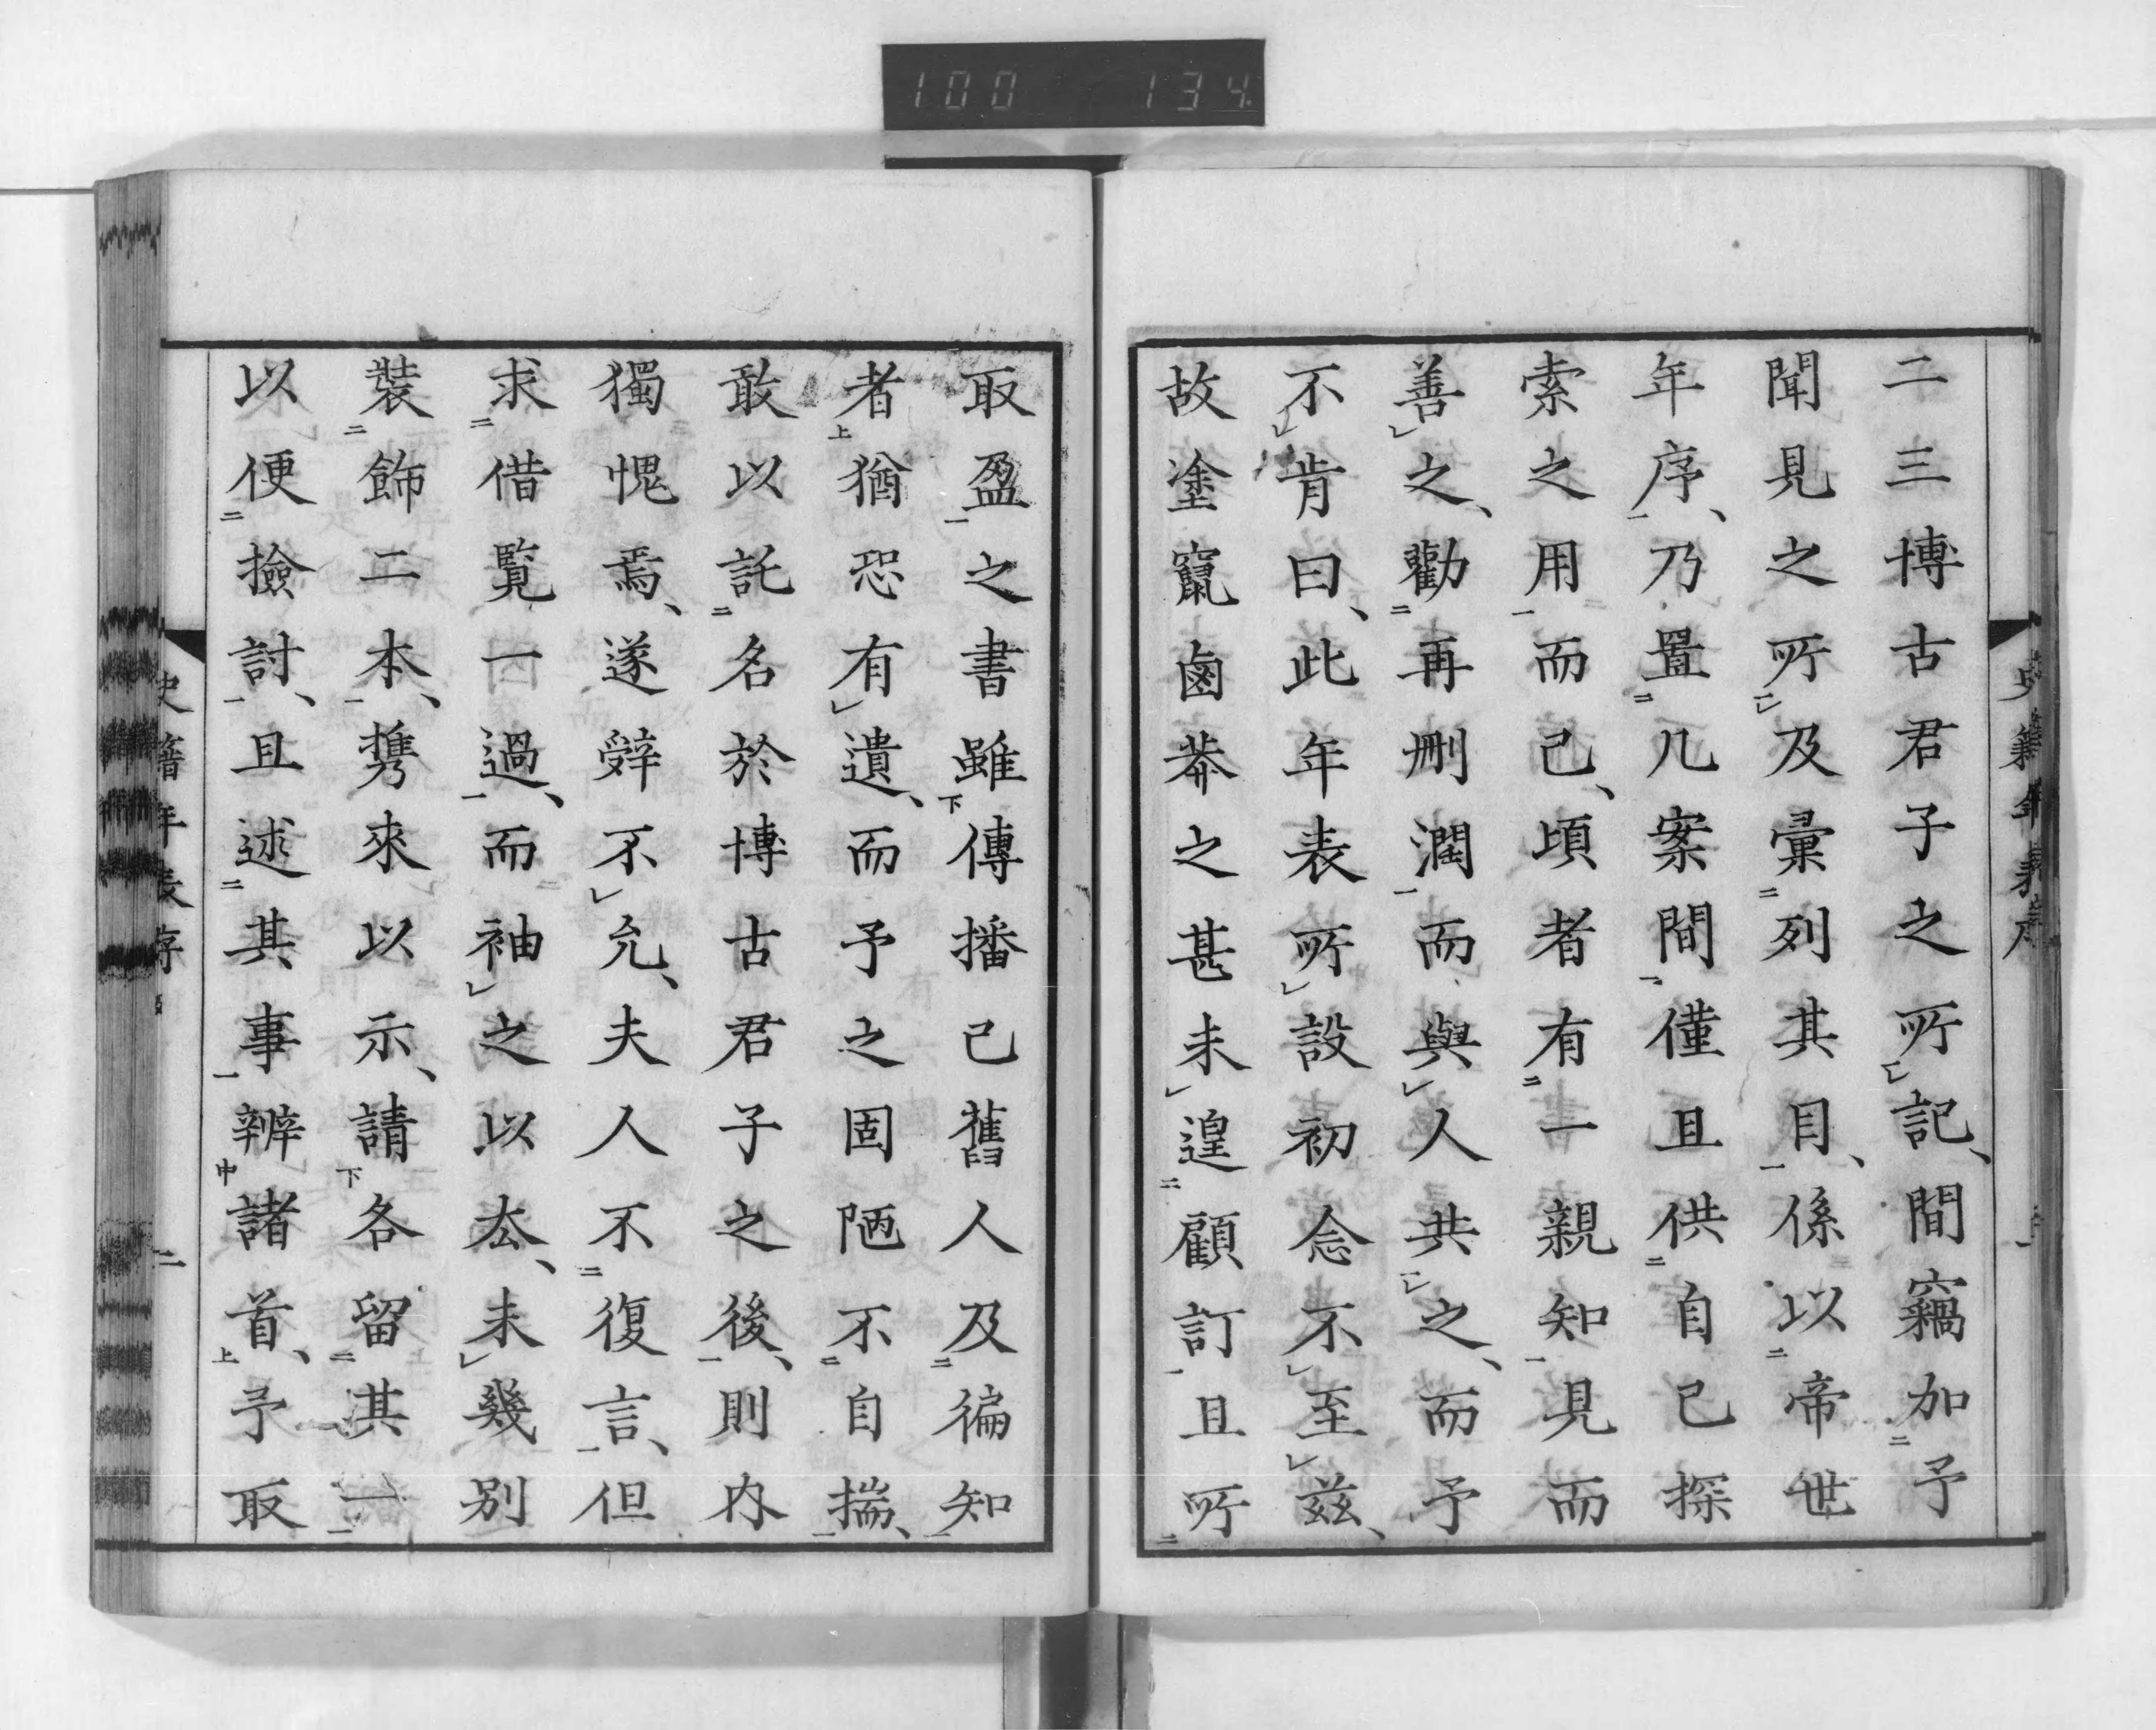 100 134
史籍年表序
二三博古君子之所記、間竊加予
聞見之所及彙列其目、係以帝世
年序、乃置几案間僅且供自己探
索之用而已、頃者有一親知見而
善之、勸再刪潤而與人共之、而予
不肯曰、此年表所設初念不至茲、
故塗竄鹵莽之甚未遑顧訂且所
取盈之書雖傳播已舊人及徧知
者猶恐有遺、而予之固陋不自揣、
敢以託名於博古君子之後、則內
獨愧焉、遂辭不允、夫人不復言、但
求借覽一過、而袖之以去、未幾別
裝飾二本、携來以示、請各留其一
以便撿討、且述其事辨諸首、予取
史籍年表序 二